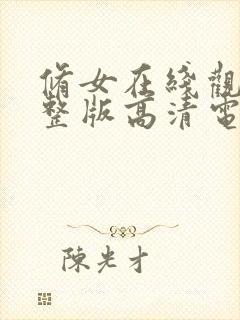 脩女在綫觀
整版高清電
陳光才